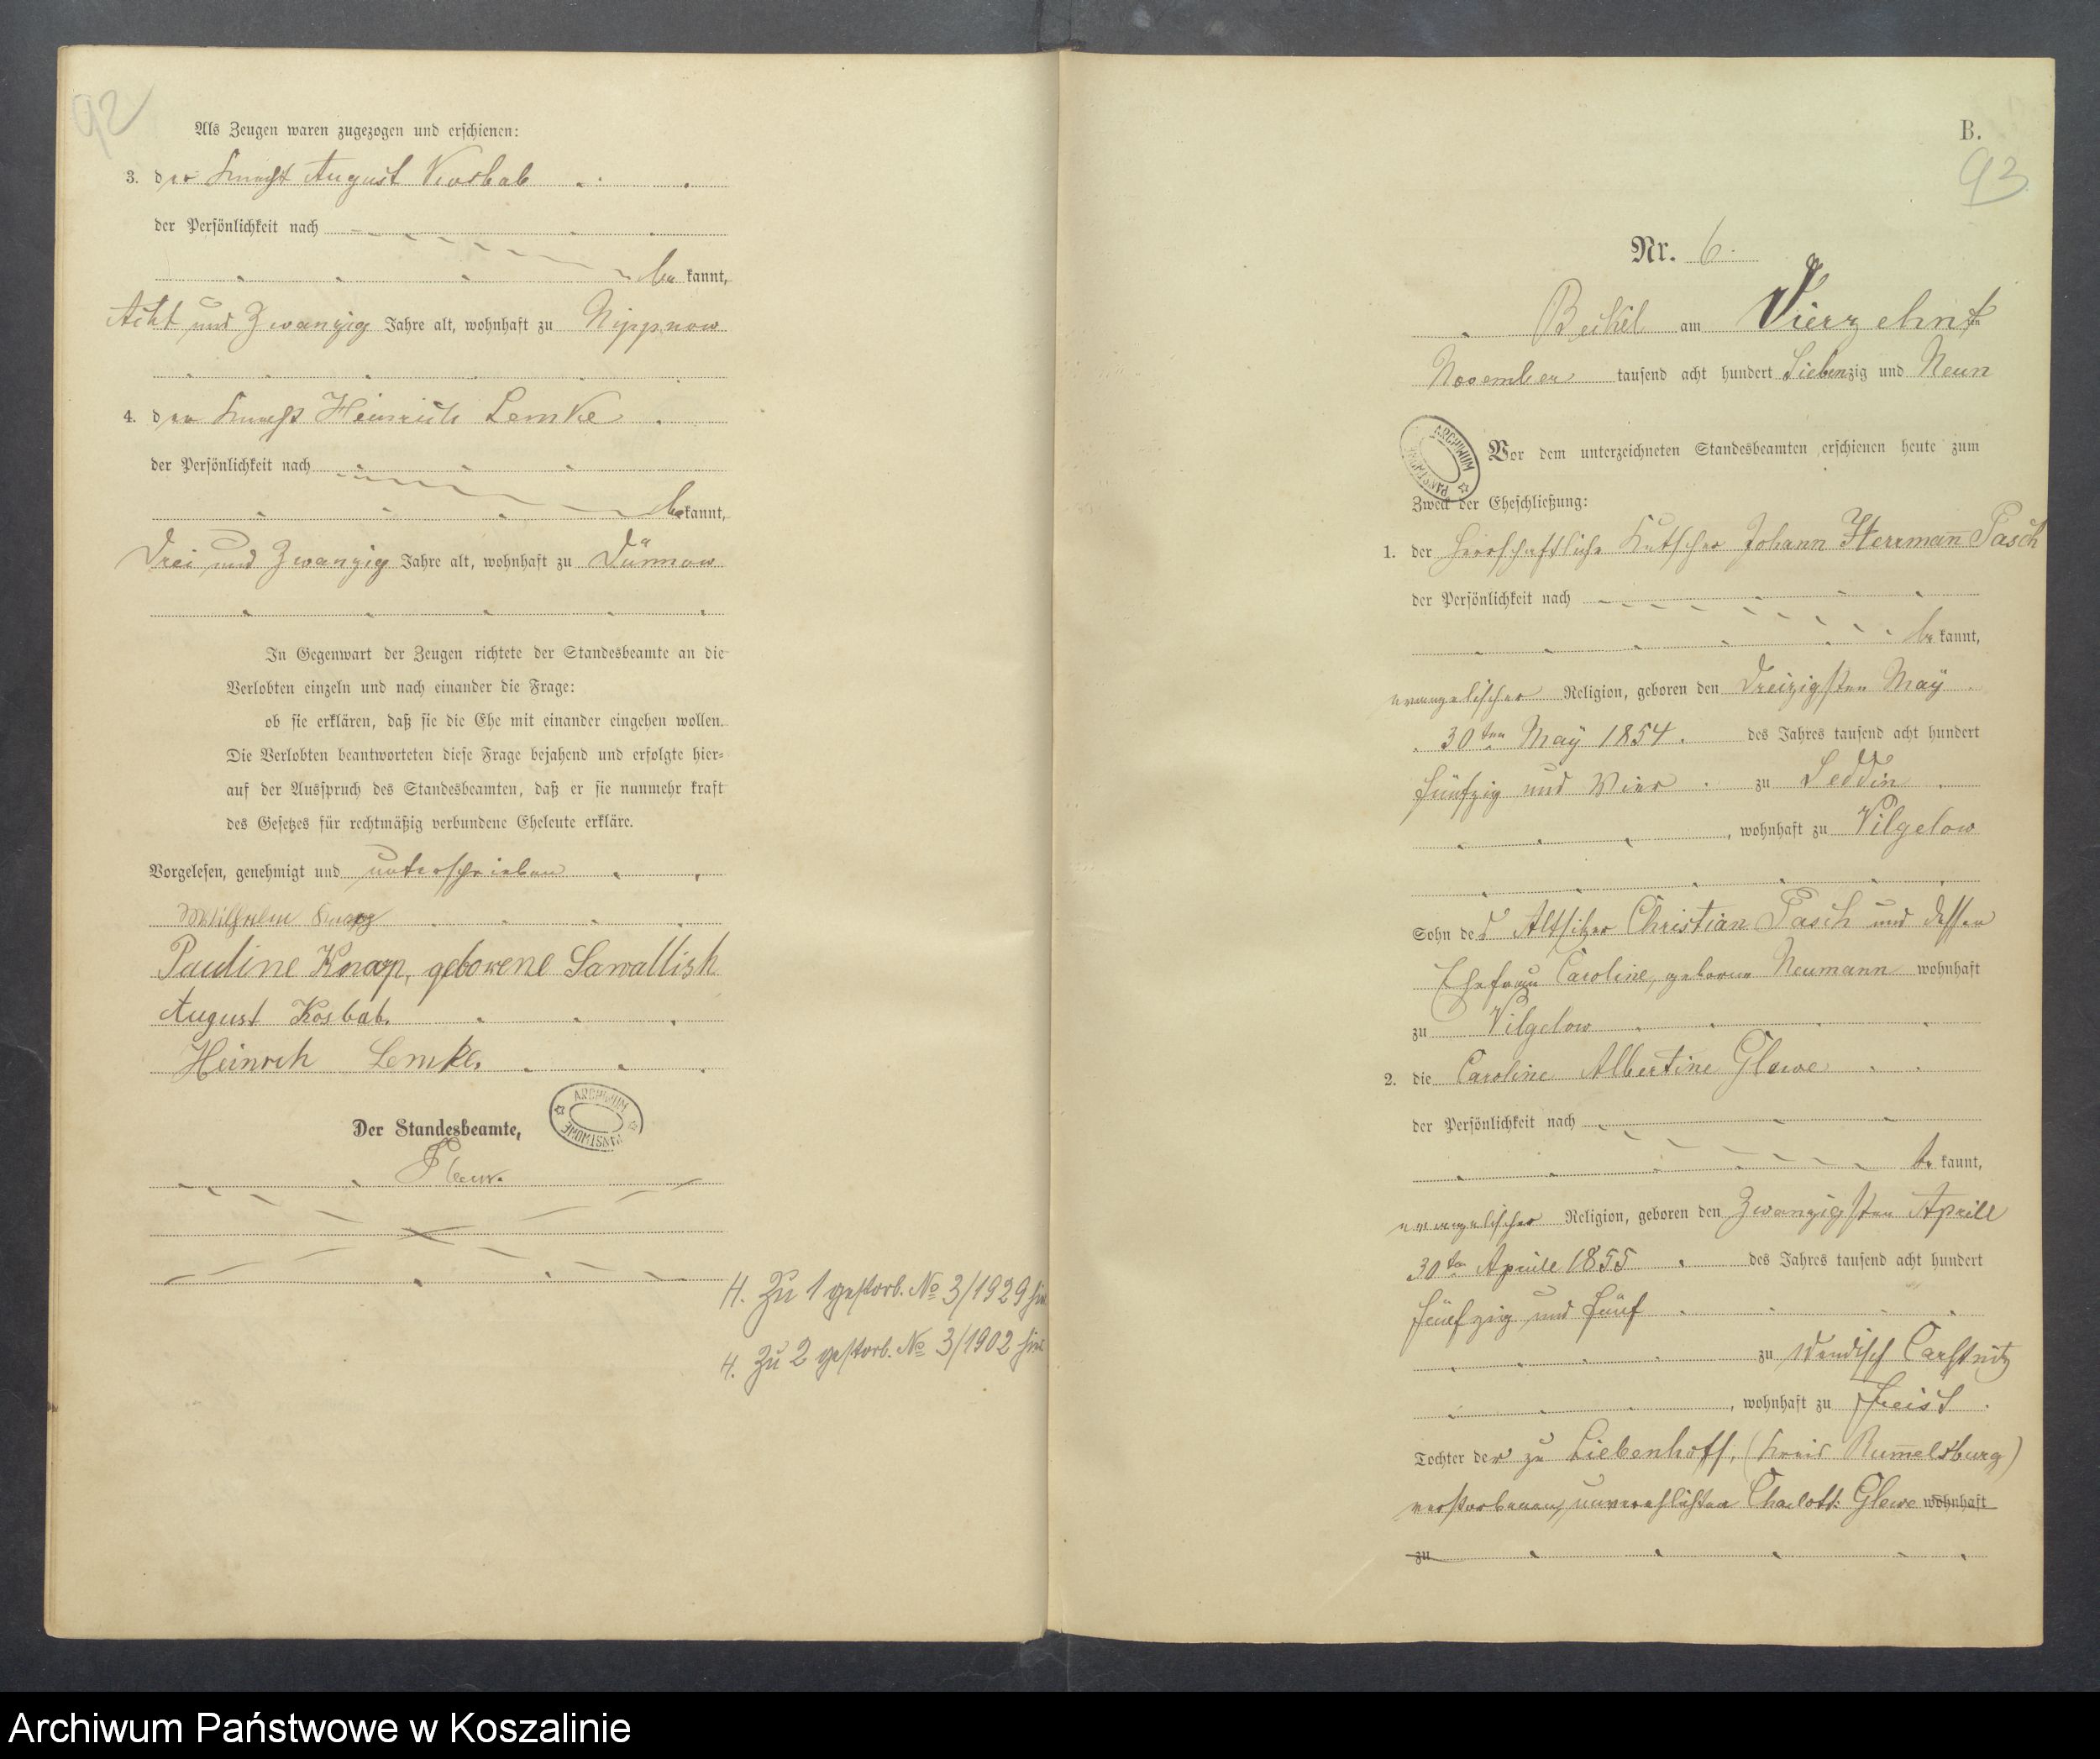 92
Als Zeugen waren zugezogen und erschienen:
3. der Knecht August Kosbab
der Persönlichkeit nach
be kannt,
Acht und Zwanzig Jahre alt, wohnhaft zu Nippnow
4. der Knecht Heinrich Lemke
der Persönlichkeit nach
be kannt,
Drei und Zwanzig Jahre alt, wohnhaft zu Dünnow
In Gegenwart der Zeugen richtete der Standesbeamte an die
Verlobten einzeln und nach einander die Frage:
ob sie erklären, daß sie die Ehe mit einander eingehen wollen.
Die Verlobten beantworteten diese Frage bejahend und erfolgte hier=
auf der Ausspruch des Standesbeamten, daß er sie nunmehr kraft
des Gesetzes für rechtmäßig verbundene Eheleute erkläre.
Vorgelesen, genehmigt und unterschrieben
Wilhelm
Pauline Knorp, geborene Sawallisk
August Kosbab.
Heinrch Lemke.
Der Standesbeamte,
ARCHIWUM PAŃSTWOWE
H. Zu 1 gestorb. No 3/1929
H. Zu 2 gestorb. No 3/1902
B.
93
Nr. 6.
Beckel am Vierzehnten
November tausend acht hundert Siebenzig und Neun
ARCHIWUM PAŃSTWOWE
Vor dem unterzeichneten Standesbeamten erschienen heute zum
Zweck der Eheschließung:
1. der herrschaftliche Kutscher Johann Herrmann Pasch
der Persönlichkeit nach
be kannt,
evangelischer Religion, geboren den Dreizigsten Maÿ
30ten Maÿ 1854. des Jahres tausend acht hundert
fünfzig und Vier zu Leddin
, wohnhaft zu Vilgelow
Sohn des Altsitzer Christian Pasch und dessen
Ehefrau Caroline, geborene Neumann wohnhaft
zu Vilgelow
2. die Caroline Albertine Glewe
der Persönlichkeit nach
be kannt,
evangelischer Religion, geboren den Zwanzigsten Aprill
30ten Aprill 1855 des Jahres tausend acht hundert
fünfzig und fünf
zu Wendisch Carstnitz
, wohnhaft zu Freist
Tochter der zu Liebenhoff, (Kreis Rummelsburg)
verstorbenen, unverehlichten Charlott: Glewe wohnhaft
zu
Archiwum Państwowe w Koszalinie